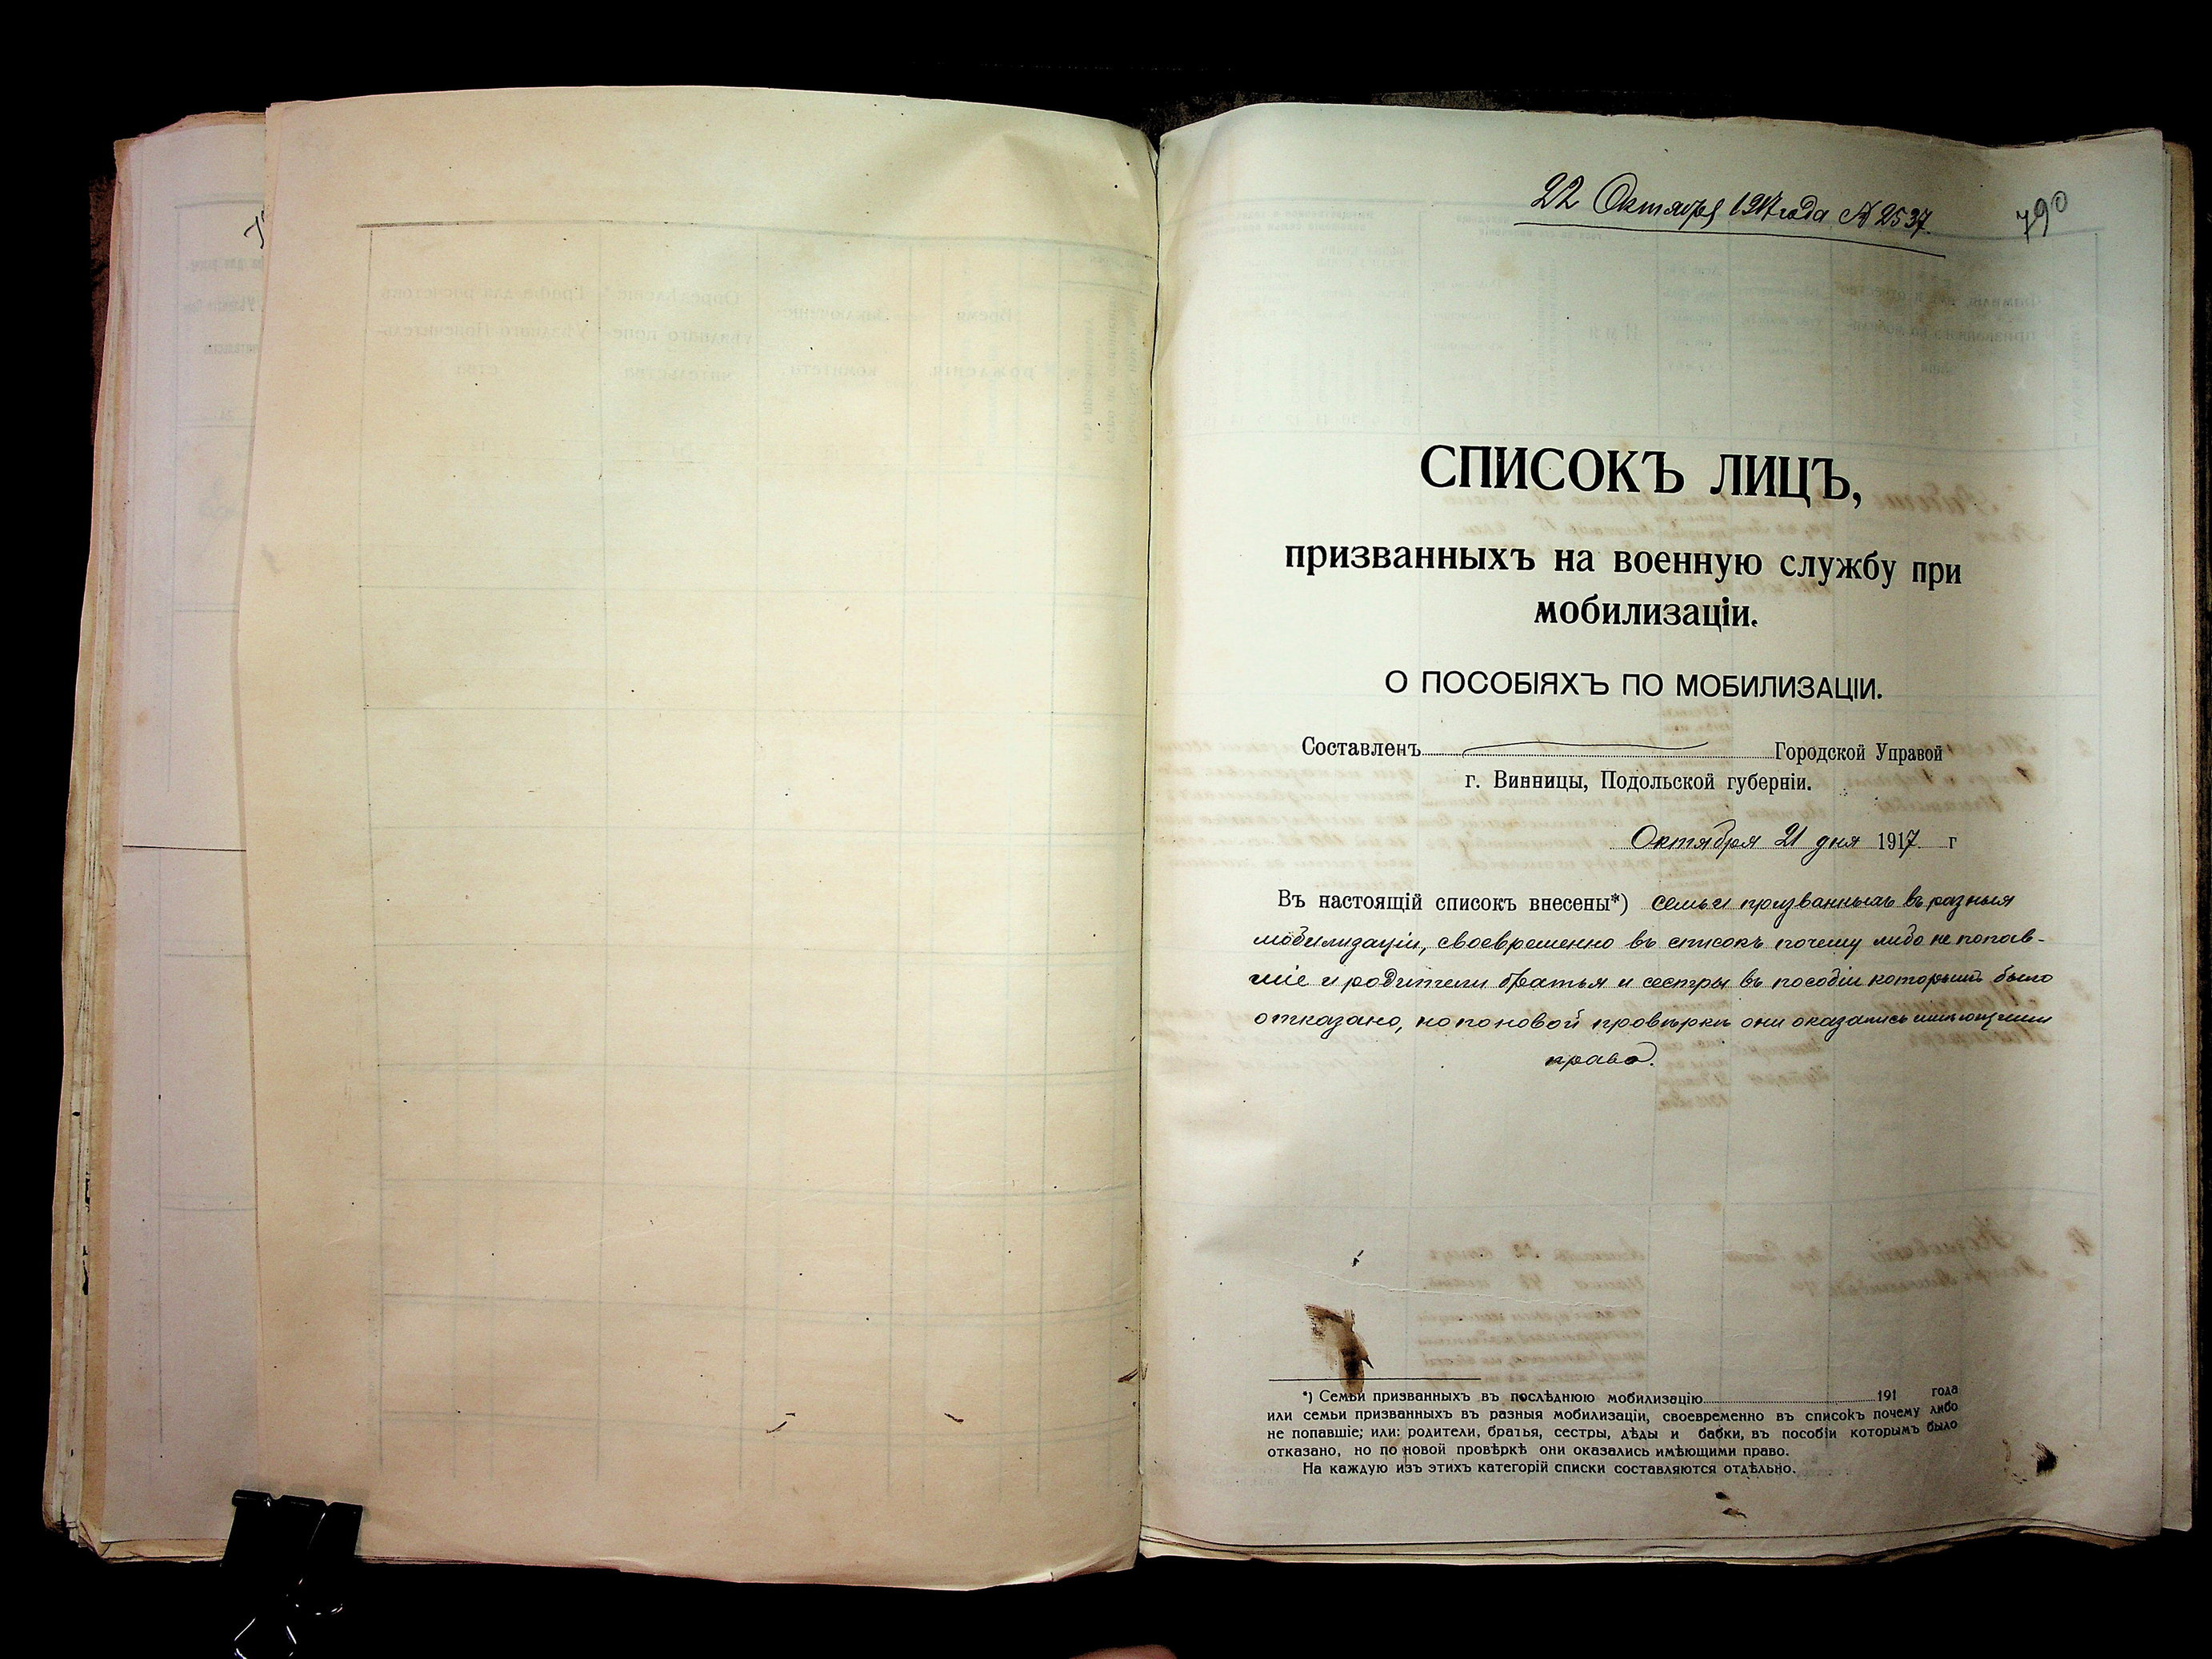 22 Октября 1917 года № 2537.
790
СПИСОКЪ ЛИЦЪ,
призванныхъ на военную службу при
мобилизаціи.
О ПОСОБІЯХЪ ПО МОБИЛИЗАЦІИ.
Составленъ Городской Управой
г. Винницы, Подольской губерніи.
Октября 21 дня 1917 г
Въ настоящій список внесены*) семьи призванныхъ въ разныя
мобилизаціи, своевременно въ списокъ почему либо не попав-
шіе и родители братья и сестры въ пособіи которымъ было
отказано, но по новой провѣркѣ они оказались имѣющими
право.
*) Семьи призванныхъ въ послѣднюю мобилизацію 191 года
или семьи призванныхъ въ разныя мобилизаціи, своевременно въ списокъ почему либо
не попавшіе; или: родители, братья, сестры, дѣды и бабки, въ пособіи которымъ было
отказано, но по новой провѣркѣ они оказались имѣющими право.
На каждую изъ этихъ категорій списки составляются отдѣльно.